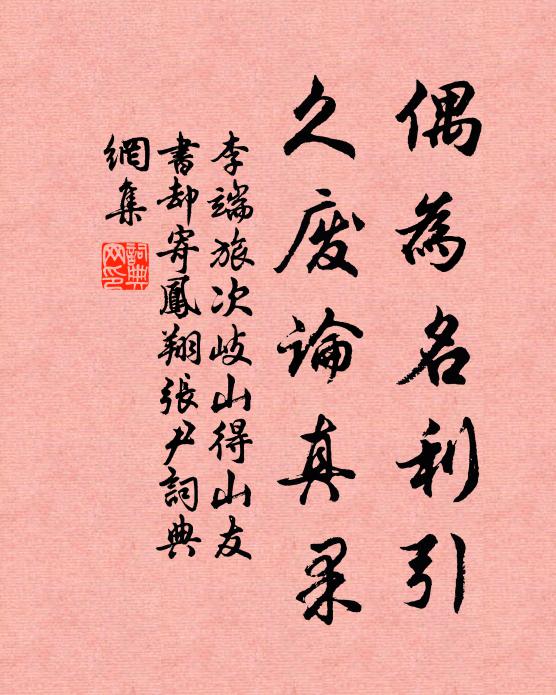 偶為名利引
久廢論真果
李端旅次岐山得山友
書却寄鳳翔張尹詞典
網集
詞典
网印